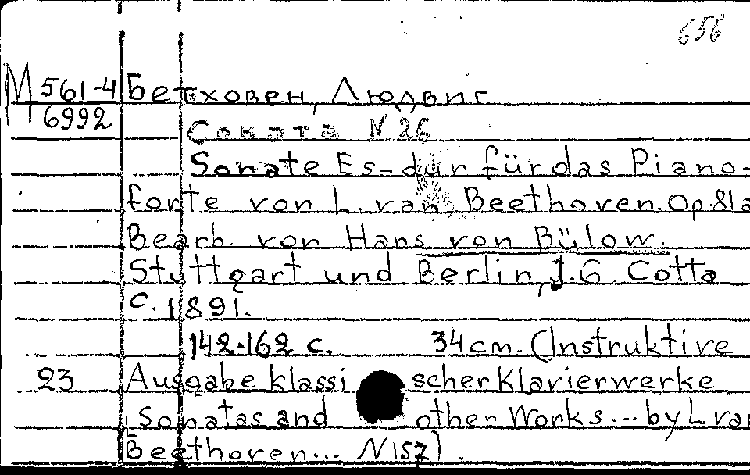 656
М 561-4 Бетховен, Людвиг
6992
Соната N 26
Sonate Es-dur für das Piano-
forte von L. van Beethoven. Op. 81a
Bearb. von Hans von Bülow.
Stuttgart und Berlin, J. G. Cotta
c. 1891.
142-162 c. 34 cm. (Instruktive
23 Ausgabe klassischer Klavierwerke
Sonatas and other Works... by L van
Beethoven... N 157).